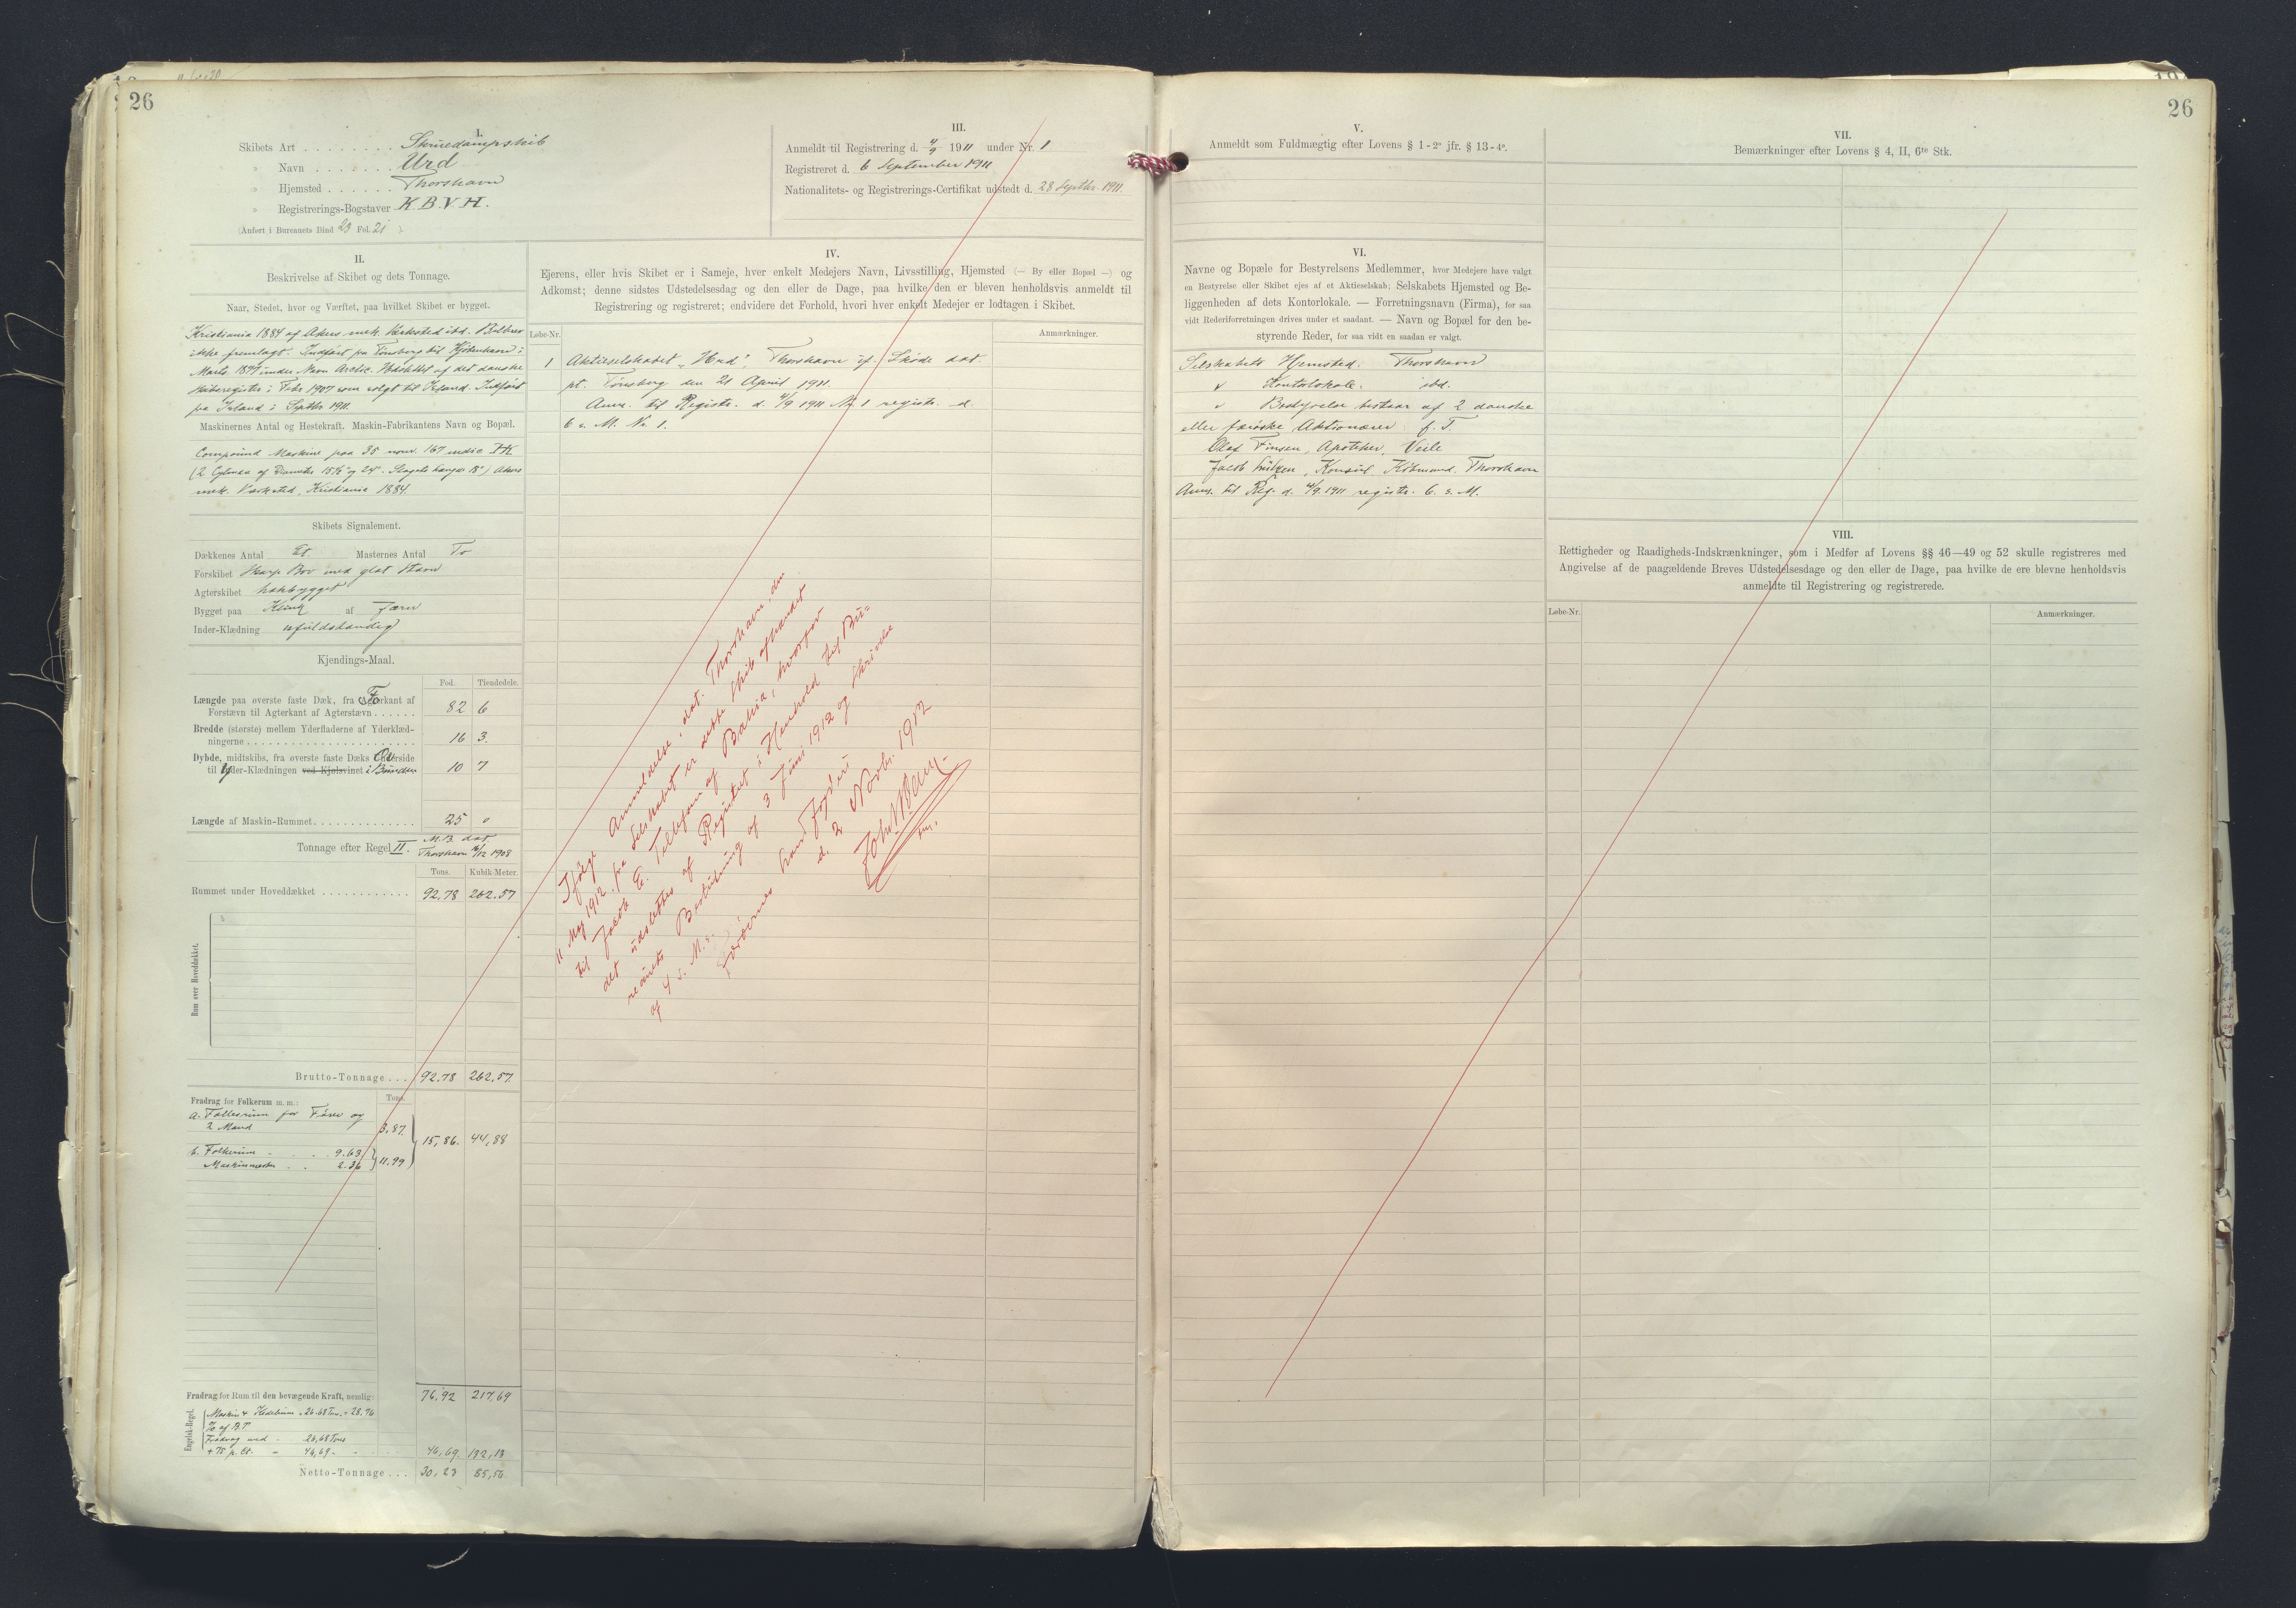 26
I.
Skibets Art . . . . . . . . Skruedampskib
» Navn . . . . . . . Urd
» Hjemsted . . . . . . Thorshavn
» Registrerings-Bogstaver K.B.V.H.
(Anført i Bureauets Bind 23 Fol. 21 ).
III.
Anmeldt til Registrering d. 4/9 1911 under Nr. 1
Registreret d. 6 September 1911
Nationalitets- og Registrerings-Certifikat udstedt d. 28 Septbr. 1911.
II.
Beskrivelse af Skibet og dets Tonnage.
Naar, Stedet, hvor og Værftet, paa hvilket Skibet er bygget.
Kristiania 1884 af Akers mek. Værksted ibd. Bilbrev
ikke fremlagt. Indført fra Tönsberg til Kjöbenhavn i
Marts 1897 under Navn Arctic. Udslettet af det danske
Skibsregister i Febr 1907 som solgt til Island. Indført
fra Island i Septbr 1911.
Maskinernes Antal og Hestekraft. Maskin-Fabrikantens Navn og Bopæl.
Compound Maskine paa 35 nom. 167 indic HK
(2 Cylindre af Diameter 15½" og 24". Slagets Længde 18") Akers
mek. Værksted, Kristiania 1884.
Skibets Signalement.
Dækkenes Antal Et. Masternes Antal To
Forskibet Skarp Bov med glat Stævn
Agterskibet hækbygget
Bygget paa Klink af Jærn
Inder-Klædning ufuldstændig
Kjendings-Maal.
Fod. Tiendedele.
Længde paa øverste faste Dæk, fra Forkant af
Forstævn til Agterkant af Agterstævn . . . . . . 82 6
Bredde (største) mellem Yderfladerne af Yderklæd-
ningerne . . . . . . . . . . . . 16 3.
Dybde, midtskibs, fra øverste faste Dæks Overside
til Yder-Klædningen ved Kjølsvinet i Bunden 10 7
Længde af Maskin-Rummet . . . . . . . . . . . . . . 25 0
Tonnage efter Regel II. M.B. dat
Thorshavn 16/12 1908
Tons. Kubik-Meter.
Rummet under Hoveddækket . . . . . . . . . . . . 92,78 262.57
Rum over Hoveddækket.
Brutto-Tonnage . . . 92.78 262,57
Fradrag for Folkerum m. m.: Tons.
a. Fællesrum for Fører og
2 Mand 3,87.
15,86. 44,88
b. Folkerum - . . . 9.63
Maskinmester . . 2.36 11.99
76,92 217,69
Fradrag for Rum til den bevægende Kraft, nemlig:
Engelsk-Regel.
Maskin & Kedelrum = 26.68 Tons. = 28,76
% af B.T.
Fradrag med - 26,68 Tons
+ 75 p. Ct. = 46,69 - 46,69. 132,13
Netto-Tonnage . . . 30,23 85,56.
IV.
Ejerens, eller hvis Skibet er i Sameje, hver enkelt Medejers Navn, Livsstilling, Hjemsted (— By eller Bopæl —) og
Adkomst; denne sidstes Udstedelsesdag og den eller de Dage, paa hvilke den er bleven henholdsvis anmeldt til
Registrering og registreret; endvidere det Forhold, hvori hver enkelt Medejer er lodtagen i Skibet.
Løbe-Nr. Anmærkninger.
1 Aktieselskabet „Urd", Thorshavn if. Skøde dat
pt. Tønsberg den 21 April 1911.
Anm. til Registr. d. 4/9 1911 Nr 1 registr. d.
6 s. M. Nr 1.
Ifølge Anmeldelse, dat. Thorshavn den
11 Maj 1912, fra Selskabet er dette Skib afhændet
til Jacob E. Tollefsen af Bahia, hvorfor
det udslettes af Registret i Henhold til Bu=
reauets Bestemning af 3 Juni 1912 og Skrivelse
af 4 s. M.
Færøernes
d. 2 Novbr. 1912
26
V.
Anmeldt som Fuldmægtig efter Lovens § 1 - 2° jfr. § 13 - 4°.
VI.
Navne og Bopæle for Bestyrelsens Medlemmer, hvor Medejere have valgt
en Bestyrelse eller Skibet ejes af et Aktieselskab; Selskabets Hjemsted og Be-
liggenheden af dets Kontorlokale. — Forretningsnavn (Firma), for saa
vidt Rederiforretningen drives under et saadant. — Navn og Bopæl for den be-
styrende Reder, for saa vidt en saadan er valgt.
Selskabets Hjemsted. Thorshavn
" Kontorlokale. ibd.
" Bestyrelse bestaar af 2 danske
eller færøske Aktionærer: f. T.
Olaf Finsen, Apotheker, Veile
Jacob Lützen, Konsul, Købmand, Thorshavn
Anm. til Reg. d. 4/9. 1911 registr. 6. s. M.
VII.
Bemærkninger efter Lovens § 4, II, 6te Stk.
VIII.
Rettigheder og Raadigheds-Indskrænkninger, som i Medfør af Lovens §§ 46—49 og 52 skulle registreres med
Angivelse af de paagældende Breves Udstedelsesdage og den eller de Dage, paa hvilke de ere blevne henholdsvis
anmeldte til Registrering og registrerede.
Løbe-Nr. Anmærkninger.